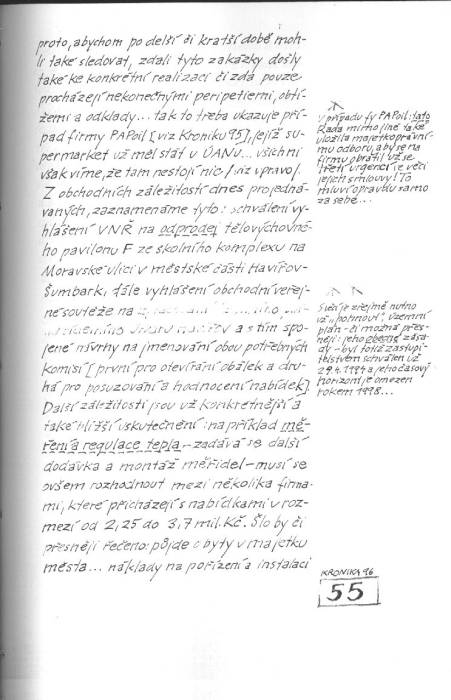 proto, abychom po delší či kratší době moh-
li také sledovat, zdali tyto zakázky došly
také ke konkrétní realizaci či zda pouze
procházejí nekonečnými peripetiemi, obtí-
žemi a odklady... tak to třeba ukazuje pří-
pad firmy PAPoil [viz Kroniku 95], jejíž su-
permarket už měl stát u ÚANu... všichni
však víme, že tam nestojí nic / viz vpravo /.
Z obchodních záležitostí dnes projedná-
vaných, zaznamenáme tyto: schválení vy-
hlášení VNŘ na odprodej tělovýchovné-
ho pavilonu F ze školního komplexu na
Moravské ulici v městské části Havířov-
Šumbark, dále vyhlášení obchodní veřej-
né soutěže na
a s tím spo-
jené návrhy na jmenování obou potřebných
komisí [první pro otevírání obálek a dru-
há pro posuzování a hodnocení nabídek].
Další záležitosti jsou už konkrétnější a
také bližší uskutečnění: na příklad mě-
ření a regulace tepla - zadává se další
dodávka a montáž měřidel - musí se
ovšem rozhodnout mezi několika firma-
mi, které přicházejí s nabídkami v roz-
mezí od 2,25 do 3,7 mil. Kč. Šlo by či
přesněji řečeno: půjde o byty v majetku
města... náklady na pořízení a instalaci
V případu fy PAPoil: tato
Rada mírně jiné také
uložila majetkoprávní-
mu odboru, aby se na
firmu obrátil už se
třetí urgencí ve věci
jejich smlouvy! To
mluví opravdu samo
za sebe...
Sice je zřejmě nutno
už „pohnout" územní
plán - či možná přes-
něji: jeho obecné zása-
dy - byl totiž zastupi-
telstvem schválen už
29.4.1994 a jeho časový
horizont je omezen
rokem 1998...
KRONIKA 96
55